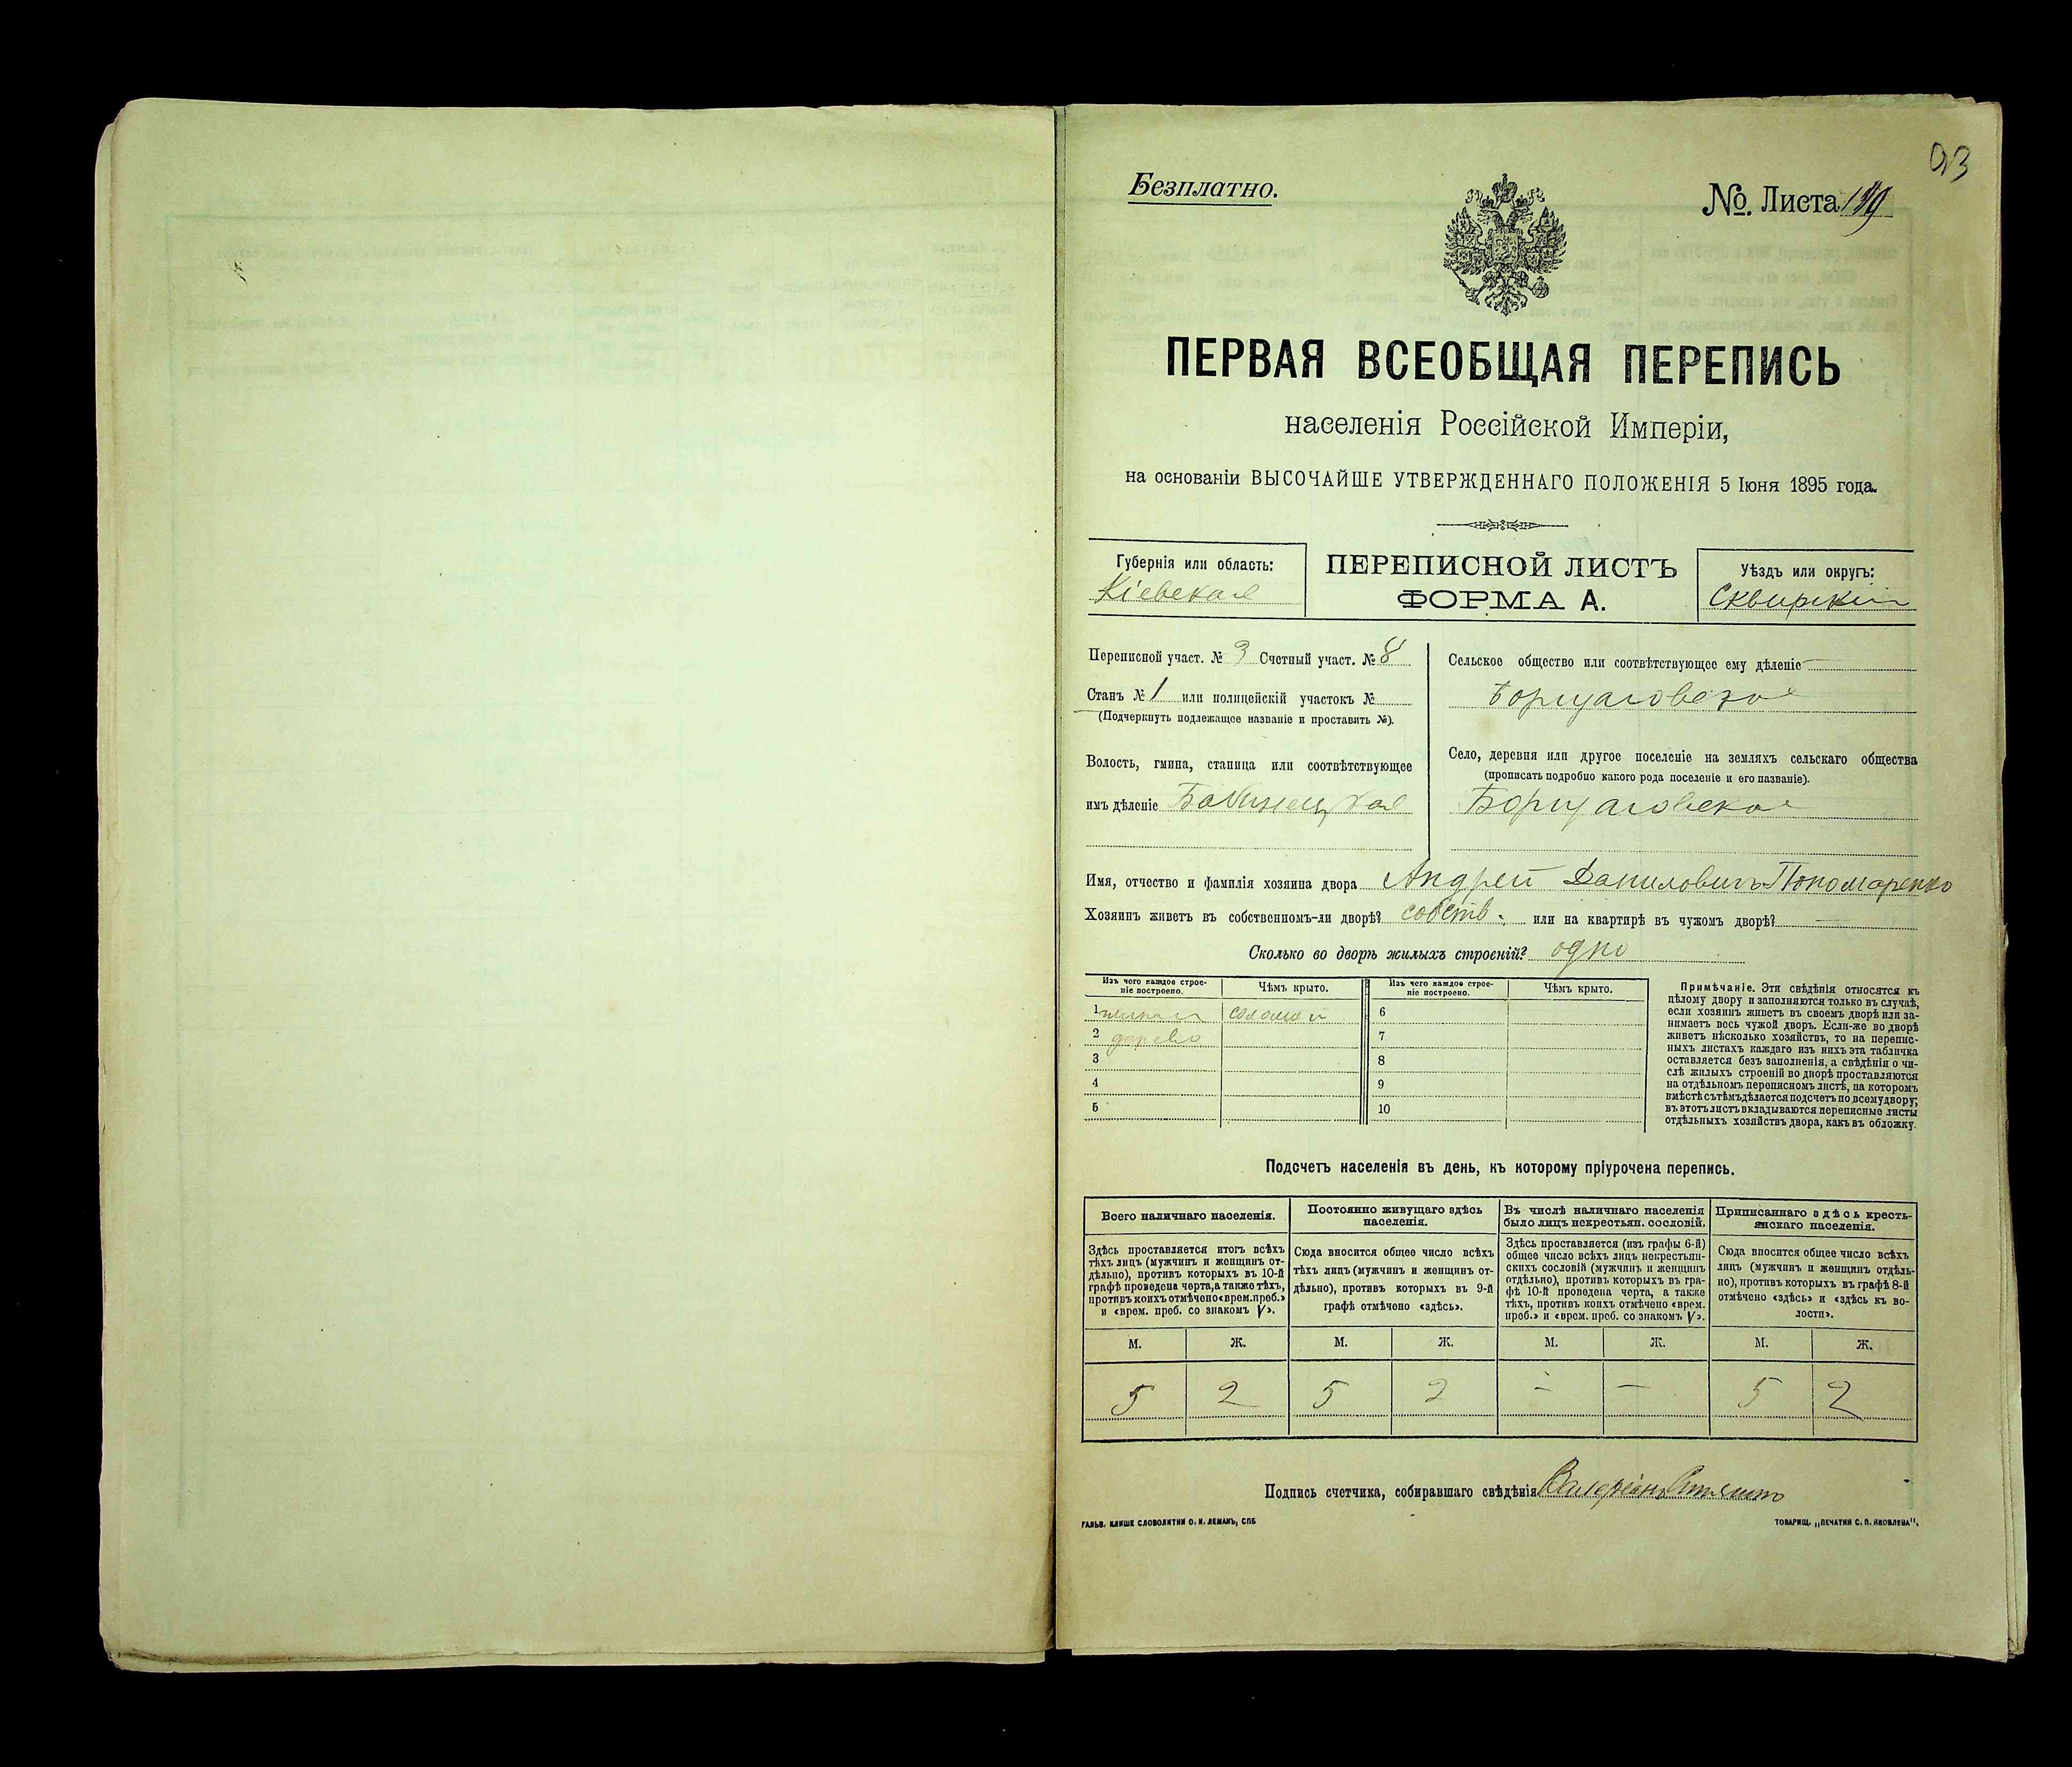 93
Безплатно.
№. Листа 139
ПЕРВАЯ ВСЕОБЩАЯ ПЕРЕПИСЬ
населенія Россійской Имперіи,
на основаніи ВЫСОЧАЙШЕ УТВЕРЖДЕННАГО ПОЛОЖЕНІЯ 5 Іюня 1895 года.
Губернія или область:
Кіевская
ПЕРЕПИСНОЙ ЛИСТЪ
ФОРМА А.
Уѣздъ или округъ:
Сквирскій
Переписной участ. № 3 Счетный участ. № 8
Станъ № 1 или полицейскій участокъ №
(Подчеркнуть подлежащее названіе и проставить №).
Волость, гмина, станица или соотвѣтствующее
имъ дѣленіе
Сельское общество или соотвѣтствующее ему дѣленіе —
Борщаговское
Село, деревня или другое поселеніе на земляхъ сельскаго общества
(прописать подробно какого рода поселеніе и его названіе).
Борщаговское
Имя, отчество и фамилія хозяина двора Андрей Даниловичъ Пономаренко
Хозяинъ живетъ въ собственномъ-ли дворѣ? собств. или на квартирѣ въ чужомъ дворѣ? —
Сколько во дворѣ жилыхъ строеній? одно
Изъ чего каждое строеніе построено.
Чѣмъ крыто.
Изъ чего каждое строеніе построено.
Чѣмъ крыто.
1 соломой
2 дерево
3
4
5
6
7
8
9
10
Примѣчаніе. Эти свѣдѣнія относятся къ
цѣлому двору и заполняются только въ случаѣ,
если хозяинъ живетъ въ своемъ дворѣ или за-
нимаетъ весь чужой дворъ. Если-же во дворѣ
живетъ нѣсколько хозяйствъ, то на перепис-
ныхъ листахъ каждаго изъ нихъ эта табличка
оставляется безъ заполненія, а свѣдѣнія о чи-
слѣ жилыхъ строеній во дворѣ проставляются
на отдѣльномъ переписномъ листѣ, на которомъ
вмѣстѣ съ тѣмъ дѣлается подсчетъ по всему двору;
въ этотъ листъ вкладываются переписные листы
отдѣльныхъ хозяйствъ двора, какъ въ обложку.
Подсчетъ населенія въ день, къ которому пріурочена перепись.
Всего наличнаго населенія.
Здѣсь проставляется итогъ всѣхъ
тѣхъ лицъ (мужчинъ и женщинъ от-
дѣльно), противъ которыхъ въ 10-й
графѣ проведена черта, а также тѣхъ,
противъ коихъ отмѣчено «врем. преб.»
и «врем. преб. со знакомъ V».
Постоянно живущаго здѣсь
населенія.
Сюда вносится общее число всѣхъ
тѣхъ лицъ (мужчинъ и женщинъ от-
дѣльно), противъ которыхъ въ 9-й
графѣ отмѣчено «здѣсь».
Въ числѣ наличнаго населенія
было лицъ некрестьян. сословій.
Здѣсь проставляется (изъ графы 6-й)
общее число всѣхъ лицъ некрестьян-
скихъ сословій (мужчинъ и женщинъ
отдѣльно), противъ которыхъ въ гра-
фѣ 10-й проведена черта, а также
тѣхъ, противъ коихъ отмѣчено «врем.
преб.» и «врем. преб. со знакомъ V».
Приписаннаго здѣсь кресть-
янскаго населенія.
Сюда вносится общее число всѣхъ
лицъ (мужчинъ и женщинъ отдѣль-
но), противъ которыхъ въ графѣ 8-й
отмѣчено «здѣсь» и «здѣсь къ во-
лости».
М. Ж. М. Ж. М. Ж. М. Ж.
5 2 5 2 — — 5 2
Подпись счетчика, собиравшаго свѣдѣнія
ГАЛЬВ. КЛИШЕ СЛОВОЛИТНИ О. И. ЛЕМАНЪ, СПБ
ТОВАРИЩ. „ПЕЧАТНЯ С. П. ЯКОВЛЕВА".